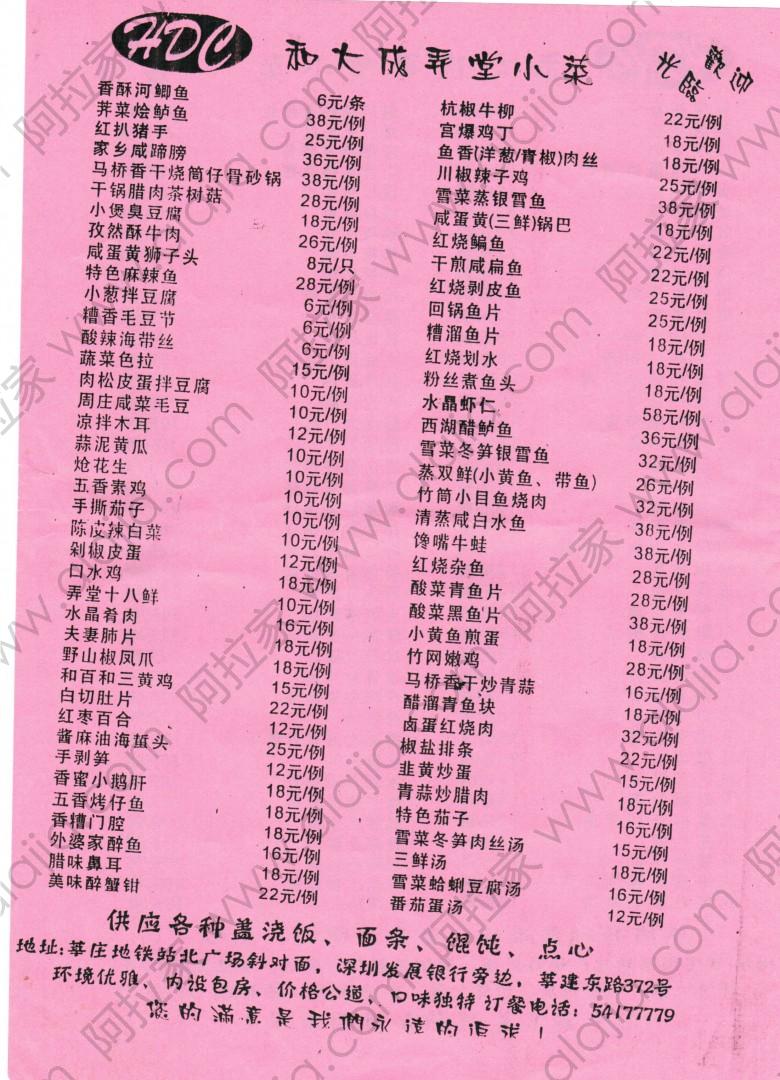 HDC
和大成弄堂小菜
欢迎光临
香酥河鲫鱼 6元/条
荠菜烩鲈鱼 38元/例
红扒猪手 25元/例
家乡咸蹄膀 36元/例
马桥香干烧筒仔骨砂锅 38元/例
干锅腊肉茶树菇 28元/例
小煲臭豆腐 18元/例
孜然酥牛肉 26元/例
咸蛋黄狮子头 8元/只
特色麻辣鱼 28元/例
小葱拌豆腐 6元/例
糟香毛豆节 6元/例
酸辣海带丝 6元/例
蔬菜色拉 15元/例
肉松皮蛋拌豆腐 10元/例
周庄咸菜毛豆 10元/例
凉拌木耳 12元/例
蒜泥黄瓜 10元/例
炝花生 10元/例
五香素鸡 10元/例
手撕茄子 10元/例
陈皮辣白菜 10元/例
剁椒皮蛋 12元/例
口水鸡 18元/例
弄堂十八鲜 10元/例
水晶肴肉 16元/例
夫妻肺片 18元/例
野山椒凤爪 18元/例
和百和三黄鸡 15元/例
白切肚片 22元/例
红枣百合 12元/例
酱麻油海蜇头 25元/例
手剥笋 12元/例
香蜜小鹅肝 18元/例
五香烤仔鱼 18元/例
香糟门腔 18元/例
外婆家醉鱼 16元/例
腊味鼻耳 18元/例
美味醉蟹钳 22元/例
杭椒牛柳 22元/例
宫爆鸡丁 18元/例
鱼香(洋葱/青椒)肉丝 18元/例
川椒辣子鸡 25元/例
雪菜蒸银雪鱼 38元/例
咸蛋黄(三鲜)锅巴 18元/例
红烧鳊鱼 22元/例
干煎咸扁鱼 22元/例
红烧剥皮鱼 25元/例
回锅鱼片 25元/例
糟溜鱼片 18元/例
红烧划水 18元/例
粉丝煮鱼头 18元/例
水晶虾仁 58元/例
西湖醋鲈鱼 36元/例
雪菜冬笋银雪鱼 32元/例
蒸双鲜(小黄鱼、带鱼) 26元/例
竹筒小目鱼烧肉 32元/例
清蒸咸白水鱼 38元/例
馋嘴牛蛙 38元/例
红烧杂鱼 28元/例
酸菜青鱼片 28元/例
酸菜黑鱼片 38元/例
小黄鱼煎蛋 18元/例
竹网嫩鸡 28元/例
马桥香干炒青蒜 16元/例
醋溜青鱼块 18元/例
卤蛋红烧肉 32元/例
椒盐排条 22元/例
韭黄炒蛋 15元/例
青蒜炒腊肉 18元/例
特色茄子 16元/例
雪菜冬笋肉丝汤 15元/例
三鲜汤 18元/例
雪菜蛤蜊豆腐汤 16元/例
番茄蛋汤 12元/例
供应各种盖浇饭、面条、馄饨、点心
地址:莘庄地铁站北广场斜对面，深圳发展银行旁边，莘建东路372号
环境优雅、内设包房、价格公道、口味独特 订餐电话：54177779
您的满意是我们永远的追求！
阿拉家 www.alajia.com